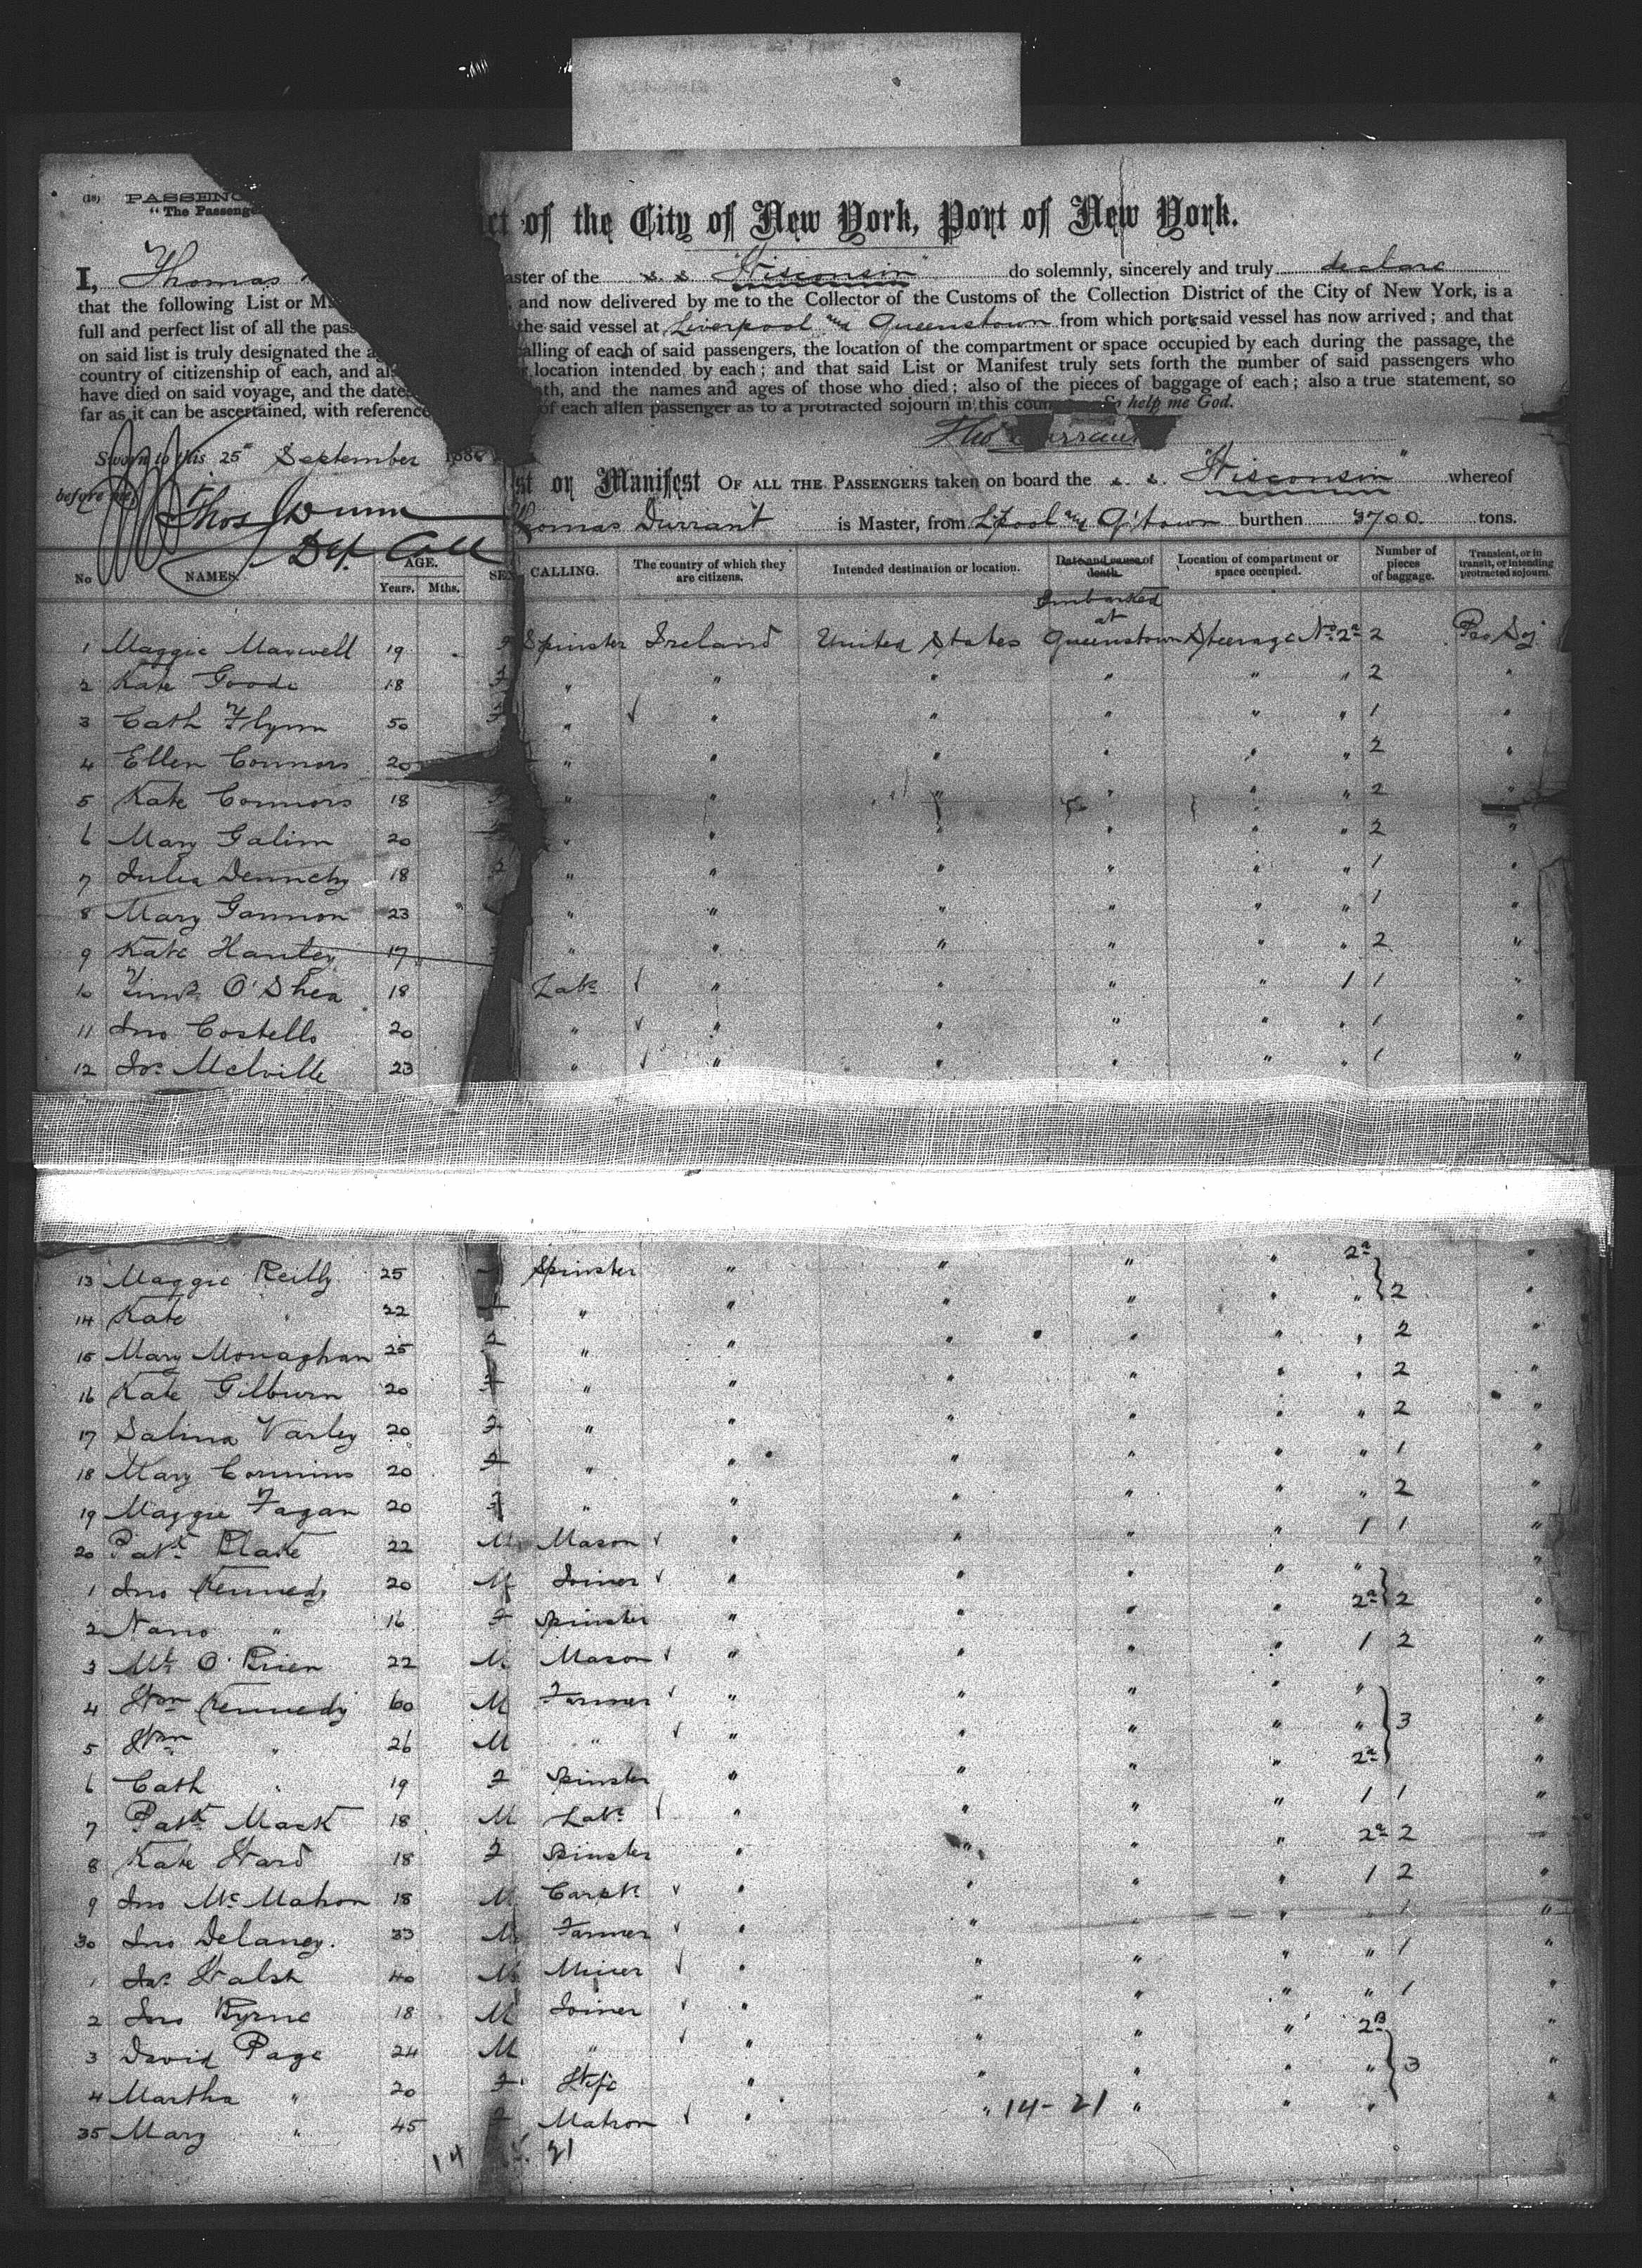 (18) PASSENG
"The Passenge
ct of the City of New York, Port of New York.
I, Thomas aster of the s. s "Wisconsin" do solemnly, sincerely and truly declare
that the following List or Ma , and now delivered by me to the Collector of the Customs of the Collection District of the City of New York, is a
full and perfect list of all the pass the said vessel at Liverpool and Queenstown from which ports said vessel has now arrived; and that
on said list is truly designated the a calling of each of said passengers, the location of the compartment or space occupied by each during the passage, the
country of citizenship of each, and al r location intended by each; and that said List or Manifest truly sets forth the number of said passengers who
have died on said voyage, and the dates ath, and the names and ages of those who died; also of the pieces of baggage of each; also a true statement, so
far as it can be ascertained, with reference of each alien passenger as to a protracted sojourn in this coun So help me God.
Tho Durrant
Sworn to this 25th September 188
before me,
Thos Dunn
Dep. Coll
st or Manifest OF ALL THE PASSENGERS taken on board the s. s. "Wisconsin" whereof
Thomas Durrant is Master, from L'pool and Q'town burthen 3700 tons.
No NAMES. AGE. Years. Mths. SEX CALLING. The country of which they are citizens. Intended destination or location. Date and cause of death. Location of compartment or space occupied. Number of pieces of baggage. Transient, or in transit, or intending protracted sojourn.
Embarked at
1 Maggie Maxwell 19 F Spinster Ireland United States Queenstown Steerage No 2a 2 Pro Soj
2 Kate Goode 18 F " " " " " " 2 "
3 Cath Flynn 50 F " " " " " " 1 "
4 Ellen Connors 20 " " " " " " 2 "
5 Kate Connors 18 " " " " " " 2 "
6 Mary Galim 20 " " " " " " 2 "
7 Julia Dennehy 18 F " " " " " " 1 "
8 Mary Gannon 23 " " " " " " 1 "
9 Kate Hanley 17 " " " " " " 2 "
10 O'Shea 18 Labr " " " " 1 1 "
11 Jno Costello 20 " " " " " " 1 "
12 Jas Melville 23 " " " " " " 1 "
13 Maggie Reilly 25 Spinster " " " " 2a "
14 Kate " 22 " " " " " " 2 "
15 Mary Monaghan 25 F " " " " " " 2 "
16 Kate Gilburn 20 F " " " " " " 2 "
17 Salina Varley 20 F " " " " " " 2 "
18 Mary Commins 20 F " " " " " " 1 "
19 Maggie Fagan 20 F " " " " " " 2 "
20 Patk Blake 22 M Mason " " " " 1 1 "
1 Jno Kennedy 20 M Joiner " " " " " "
2 Nano " 16 F Spinster " " " " 2a 2 "
3 Ml O'Brien 22 M Mason " " " " 1 2 "
4 Wm Kennedy 60 M Farmer " " " " " "
5 Wm " 26 M " " " " " " 3 "
6 Cath " 19 F Spinster " " " " 2a "
7 Patk Mack 18 M Labr " " " " 1 1 "
8 Kate Ward 18 F Spinster " " " " 2a 2 "
9 Jno McMahon 18 M Carptr " " " " 1 2 "
30 Jno Delaney. 33 M Farmer " " " " " 1 "
1 Jas Walsh 40 M Miner " " " " " 1 "
2 Jno Byrne 18 M Joiner " " " " " 1 "
3 David Page 24 M " " " " " 2B "
4 Martha " 20 F Wife " " " " " 3 "
35 Mary " 45 F Matron " " 14-21 " " " "
14 21